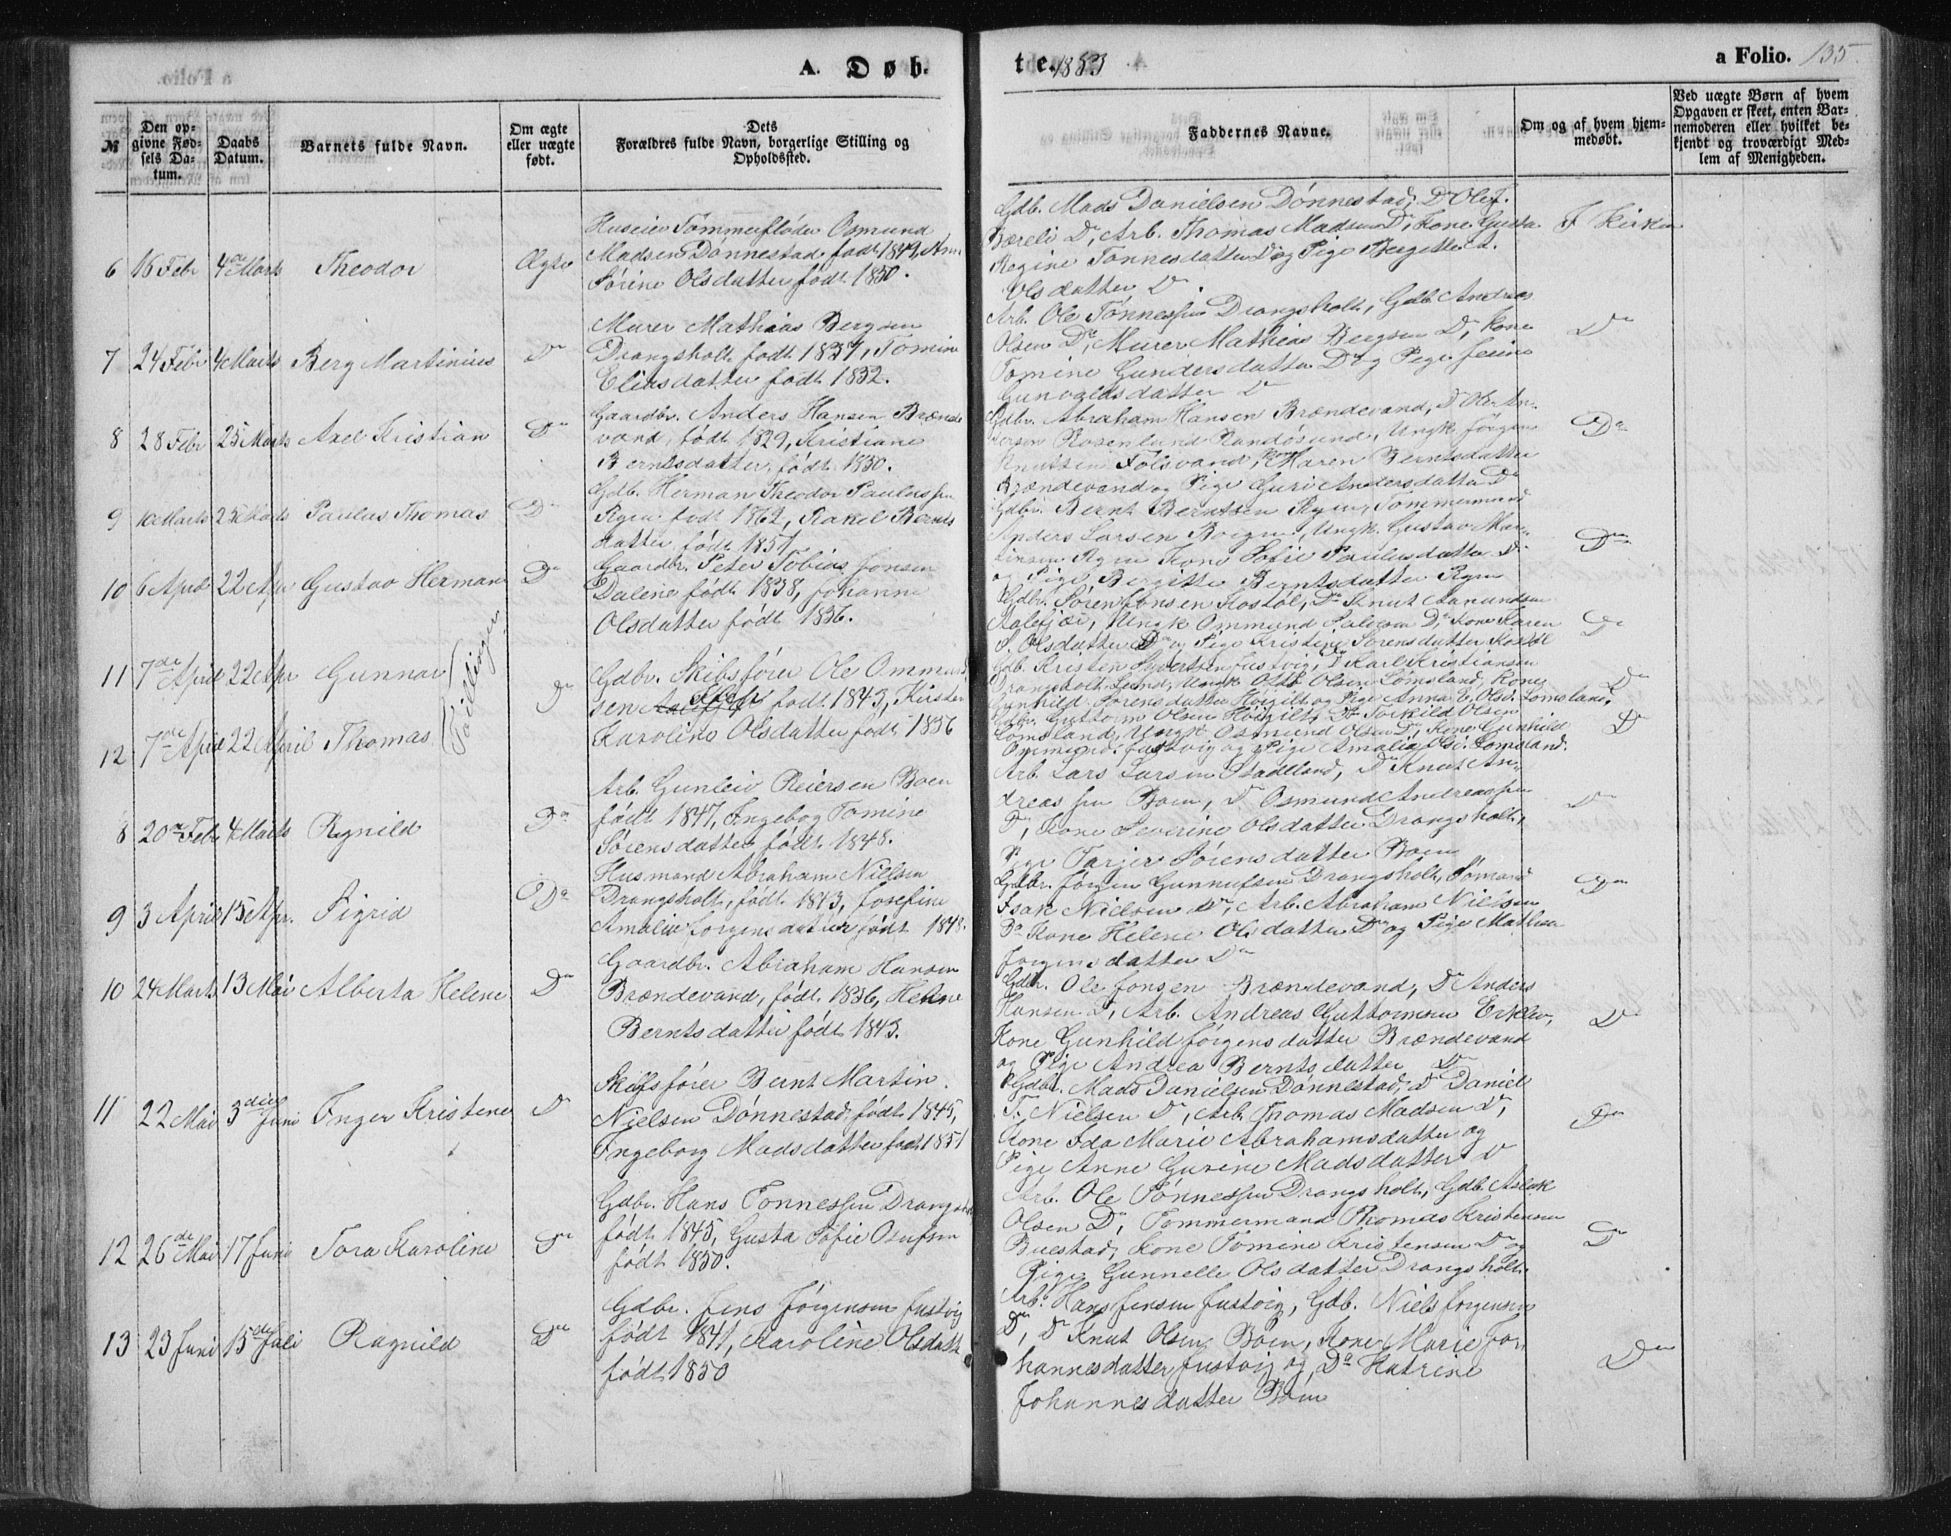 A. Døb-
te. 1883
a Folio. 135
№
Den op-
givne Fød-
sels Da-
tum.
Daabs
Datum.
Barnets fulde Navn.
Om ægte
eller uægte
født.
Dets
Forældres fulde Navn, borgerlige Stilling og
Opholdssted.
Faddernes Navne.
Om og af hvem hjem-
medøbt.
Ved uægte Børn af hvem
Opgaven er skeet, enten Bar-
nemoderen eller hvilket be-
kjendt og troværdigt Med-
lem af Menigheden.
6 16 Febr 4de Marts Theodor Ægte
Huseier Tømmerfløder Osmund
Madsen Dønnestad født 1849,
Sørine Olsdatter født 1850.
Gdb. Mads Danielsen Dønnestad, Do Ole J.
Bæreli Do, Arb. Thomas Madsen Do, Kone Gusta
Regine Tønnesdatter Do og Pige Bergitte A.
Olsdatter Do.
I Kirken
7 24 Febr 4 Marts Berg Martinius Do
Murer Mathias Bergsen
Drangsholt født 1837, Tomine
Eliasdatter født 1832.
Arb. Ole Tønnessen Drangsholt, Gdb. Andreas
Olsen Do, Murer Mathias Bergsen Do, Kone
Tomine Gundersdatter Do og Pige
Gunvaldsdatter Do
Do
8 28 Febr 25 Marts Axel Kristian Do
Gaardbr. Anders Hansen Brænde
vand, født 1829, Kristiane
Berntsdatter, født 1850.
Gdbr. Abraham Hansen Brændevand, Do Ole An-
dersen Rosenlund Randøsund, Ungk. Jørgen
Knutsen Følsvand, Kone Maren Berntsdatter
Brændevand og Pige Guri Andersdatter Do
Do
9 10 Marts 25 Marts Paulus Thomas Do
Gdb. Herman Theodor Paulussen
Ryen født 1862, Rakel Bernts
datter født 1857
Gdbr. Bernt Berntsen Ryen, Tømmermand
Anders Larsen Boen, Ungk. Gustav Mar-
tinsen Ryen Kone Sofie Paulusdatter Do
og Pige Bergitte Berntsdatter Ryen
Do
10 6 April 22 Apr Gustav Herman Do
Gaardbr. Peter Tobias Jonsen
Dalene født 1838, Johanne
Olsdatter født 1836.
Gdbr. Søren Jonsen Kostøl, Do Knut Aanundsen
Kalefjær, Ungk Ommund Do Kone Karen
S. Olsdatter Do og Pige Kristine Sørensdatter Kostøl
Do
11 7de April 22 Apr Gunnar
Tvillinger
Do
12 7de April 22 April Thomas
Gdbr. Skibsfører Ole Ommund
sen født 1843, Kirsten
Karoline Olsdatter født 1856
Gdb. Kristen Justvig, Do Karl Kristiansen
Drangsholt Lund, Ungk Olsen Lømsland, Kone
Gunhild Sørensdatter Høigilt og Pige Anna E. Olsd. Lømsland.
Do
Gdbr. Guttorm Olsen Høigilt, Do Torkild Olsen
Lømsland, Ungk Osmund Olsen Do, Kone Gunhild
Ommunds. Justvig og Pige Amalia Olsd. Lømsland.
Do
8 20de Febr 4 Marts Ragnild Do
Arb. Gunleiv Reiersen Boen
født 1847, Ingebog Tomine
Sørensdatter født 1848.
Arb. Lars Larsen Stadeland, Do Knut An-
dreassen Boen, Do Osmund Andreassen
Do, Kone Severine Olsdatter Drangsholt,
Pige Tarjer Sørensdatter Boen
Do
9 3 April 15 Apr. Sigrid Do
Husmand Abraham Nielsen
Drangsholt, født 1843, Josefine
Amalie Jørgensdatter født 1848.
Gdbr. Jørgen Gunnufsen Drangsholt, Sømand
Isak Nielsen Do, Arb. Abraham Nielsen
Do Kone Helene Olsdatter Do og Pige Mathea
Jørgensdatter Do
Do
10 24 Marts 13 Mai Alberta Helene Do
Gaardbr. Abraham Hansen
Brændevand, født 1836, Helene
Berntsdatter født 1843.
Gdbr. Ole Jonsen Brændevand, Do Anders
Hansen Do, Arb. Andreas Guttormsen Eiklev,
Kone Gunhild Jørgensdatter Brændevand
og Pige Andrea Berntsdatter Do
Do
11 22 Mai 3die Juni Inger Kristene Do
Skibsfører Bernt Martin
Nielsen Dønnestad født 1845,
Ingeborg Madsdatter født 1851
Gdbr. Mads Danielsen Dønnestad, Do Daniel
T. Nielsen Do, Arb. Thomas Madsen Do,
Kone Ida Marie Abrahamsdatter og
Pige Anne Gurine Madsdatter Do
Do
12 26de Mai 17 Juni Tora Karoline Do
Gdbr. Hans Tønnessen Drangsholt
født 1845, Gusta Sofie Osufsen
født 1850.
Arb. Ole Tønnessen Drangsholt, Gdb. Aslak
Olsen Do, Tømmermand Thomas Kristensen
Buestad, Kone Tomine Kristensen Do og
Pige Gunnelle Olsdatter Drangsholt.
Do
13 23 Juni 15de Juli Ragnild Do
Gdbr. Jens Jørgensen Justvig
født 1841, Karoline Olsdatt
født 1850
Arb. Hans Jensen Justvig, Gdb. Niels Jørgensen
Do, Do Knut Olsen Boen, Kone Marie Jo-
hannesdatter Justvig og Do Katrine
Johannesdatter Boen
Do